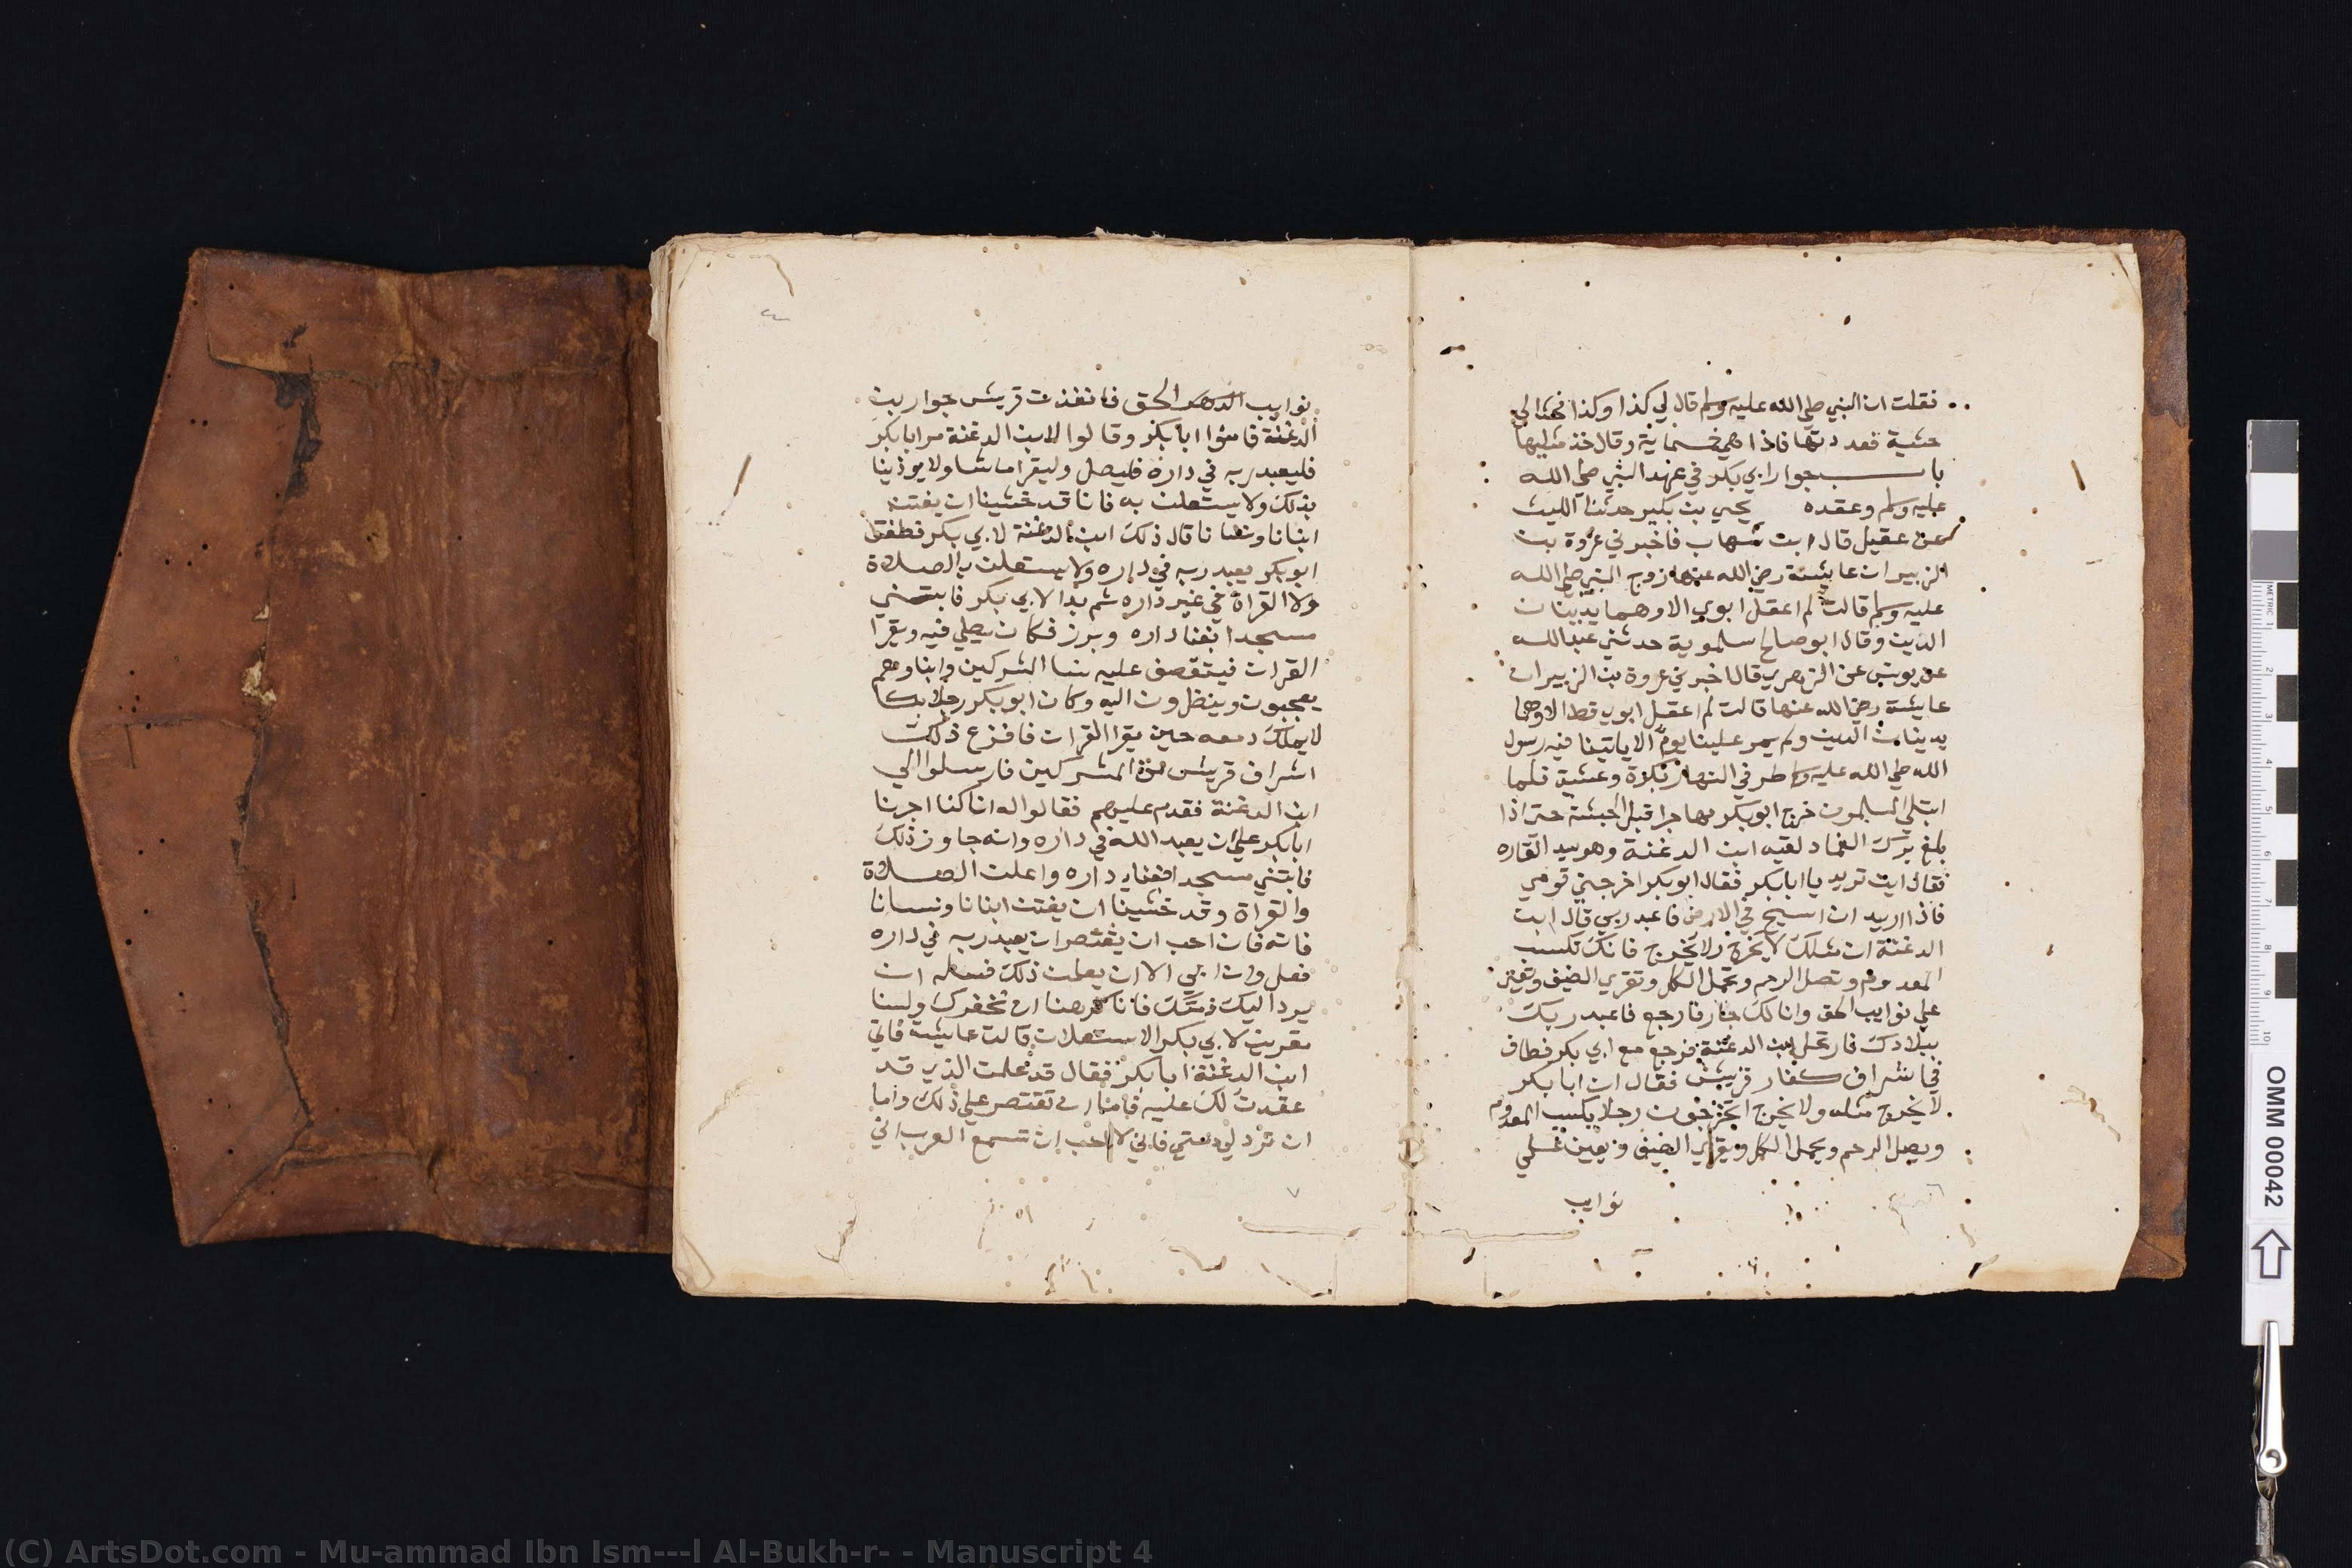 فقلت ان النبي صلي الله عليه وسلم قال لي كذا وكذا فحثا لي
حثية فعددتها فاذا هي خمسماية وقال خذ مثليها
باب جوار ابي بكر في عهد النبي صلي الله
عليه وسلم وعقده يحيي بن بكير حدثنا الليث
عن عقيل قال ابن شهاب فاخبرني عروة بن
الزبير ان عايشة رضي الله عنها زوج النبي صلي الله
عليه وسلم قالت لم اعقل ابوي الا وهما يدينان
الدين وقال ابو صالح سلموية حدثني عبد الله
عن يونس عن الزهري قال اخبرني عروة بن الزبير ان
عايشة رضي الله عنها قالت لم اعقل ابوي قط الا وهما
يدينان الدين ولم يمر علينا يوم الا ياتينا فيه رسول
الله صلي الله عليه وسلم طرفي النهار بكرة وعشية فلما
ابتلي المسلمون خرج ابو بكر مهاجرا قبل الحبشة حتى اذا
بلغ برك الغماد لقيه ابن الدغنة وهو سيد القاره
فقال اين تريد يا ابا بكر فقال ابو بكر اخرجني قومي
فاذا اريد ان اسيح في الارض فاعبد ربي قال ابن
الدغنة ان مثلك لا يخرج ولا يخرج فانك تكسب
المعدوم وتصل الرحم وتحمل الكل وتقري الضيف وتعين
علي نوايب الحق وانا لك جار فارجع فاعبد ربك
ببلادك فارتحل ابن الدغنة فرجع مع ابي بكر فطاف
في اشراف كفار قريش فقال ان ابا بكر
لا يخرج مثله ولا يخرج اتخرجون رجلا يكسب المعدوم
ويصل الرحم ويحمل الكل ويقري الضيف ويعين علي
نوايب
نوايب الحق فانفذت قريش جوار بن
الدغنة فامنوا ابا بكر وقالوا لابن الدغنة مر ابا بكر
فليعبد ربه في داره فليصل وليقرا ما شا ولا يوذينا
بذلك ولا يستعلن به فانا قد خشينا ان يفتن
ابنانا ونسانا قال ذلك ابن الدغنة لابي بكر فطفق
ابو بكر يعبد ربه في داره ولا يستعلن بالصلاة
ولا القراة في غير داره ثم بدا لابي بكر فابتني
مسجدا بفنا داره وبرز فكان يصلي فيه ويقرا
القران فيتقصف عليه نسا المشركين وابناوهم
يعجبون وينظرون اليه وكان ابو بكر رجلا بكا
لا يملك دمعه حين يقرا القران فافزع ذلك
اشراف قريش من المشركين فارسلوا الي
ابن الدغنة فقدم عليهم فقالوا له انا كنا اجرنا
ابا بكر علي ان يعبد الله في داره وانه جاوز ذلك
فابتني مسجدا بفناء داره واعلن الصلاة
والقراة وقد خشينا ان يفتن ابنانا ونسانا
فاته فان احب ان يقتصر ان يعبد ربه في داره
فعل وان ابي الا ان يعلن ذلك فسله ان
يرد اليك ذمتك فانا كرهنا ان نخفرك ولسنا
مقرين لابي بكر الاستعلان قالت عايشة فاتي
ابن الدغنة ابا بكر فقال قد علمت الذي قد
عقدت لك عليه فاما ان تقتصر علي ذلك واما
ان ترد لي ذمتي فاني لا احب ان تسمع العرب اني
OMM 00042
METRIC 1 2 3 4 5 6 7 8 9 10
(C) ArtsDot.com - Mu-ammad Ibn Ism---l Al-Bukh-r- - Manuscript 4